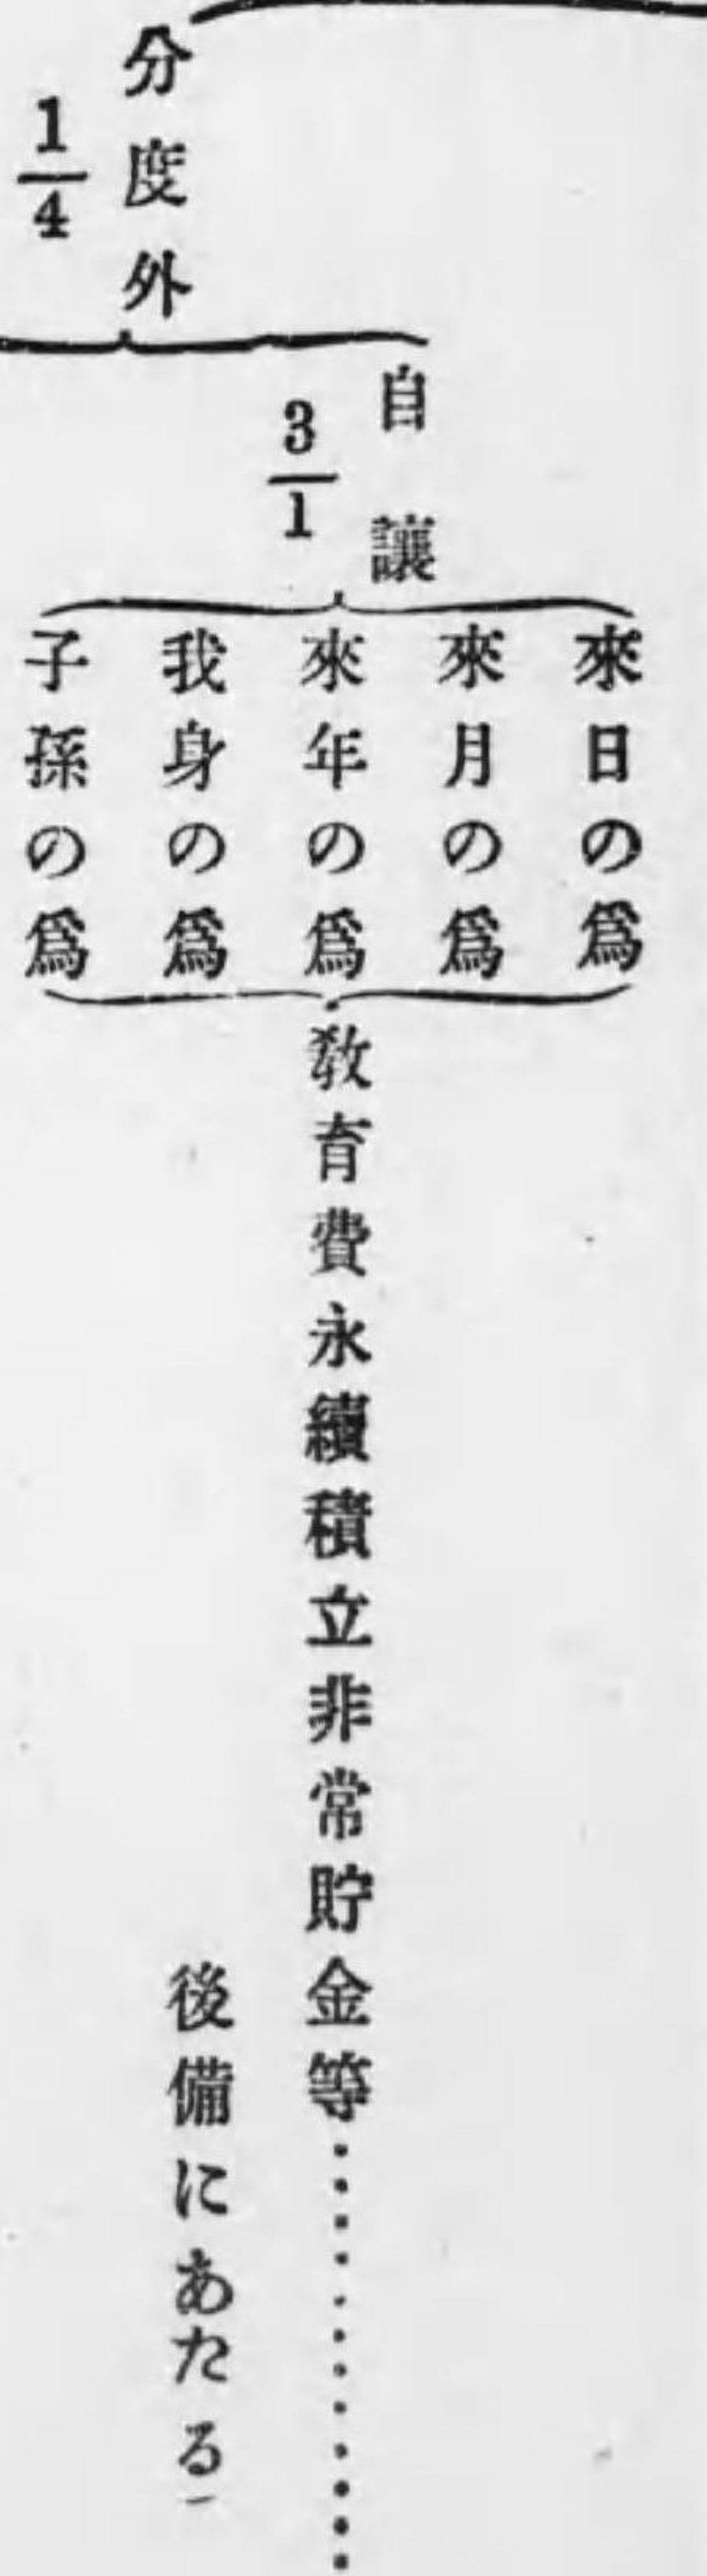 分度外
1/4
自讓
3/1
來日の爲
來月の爲
來年の爲
我身の爲
子孫の爲
敎育費永續積立非常貯金等…………
後備にあたる